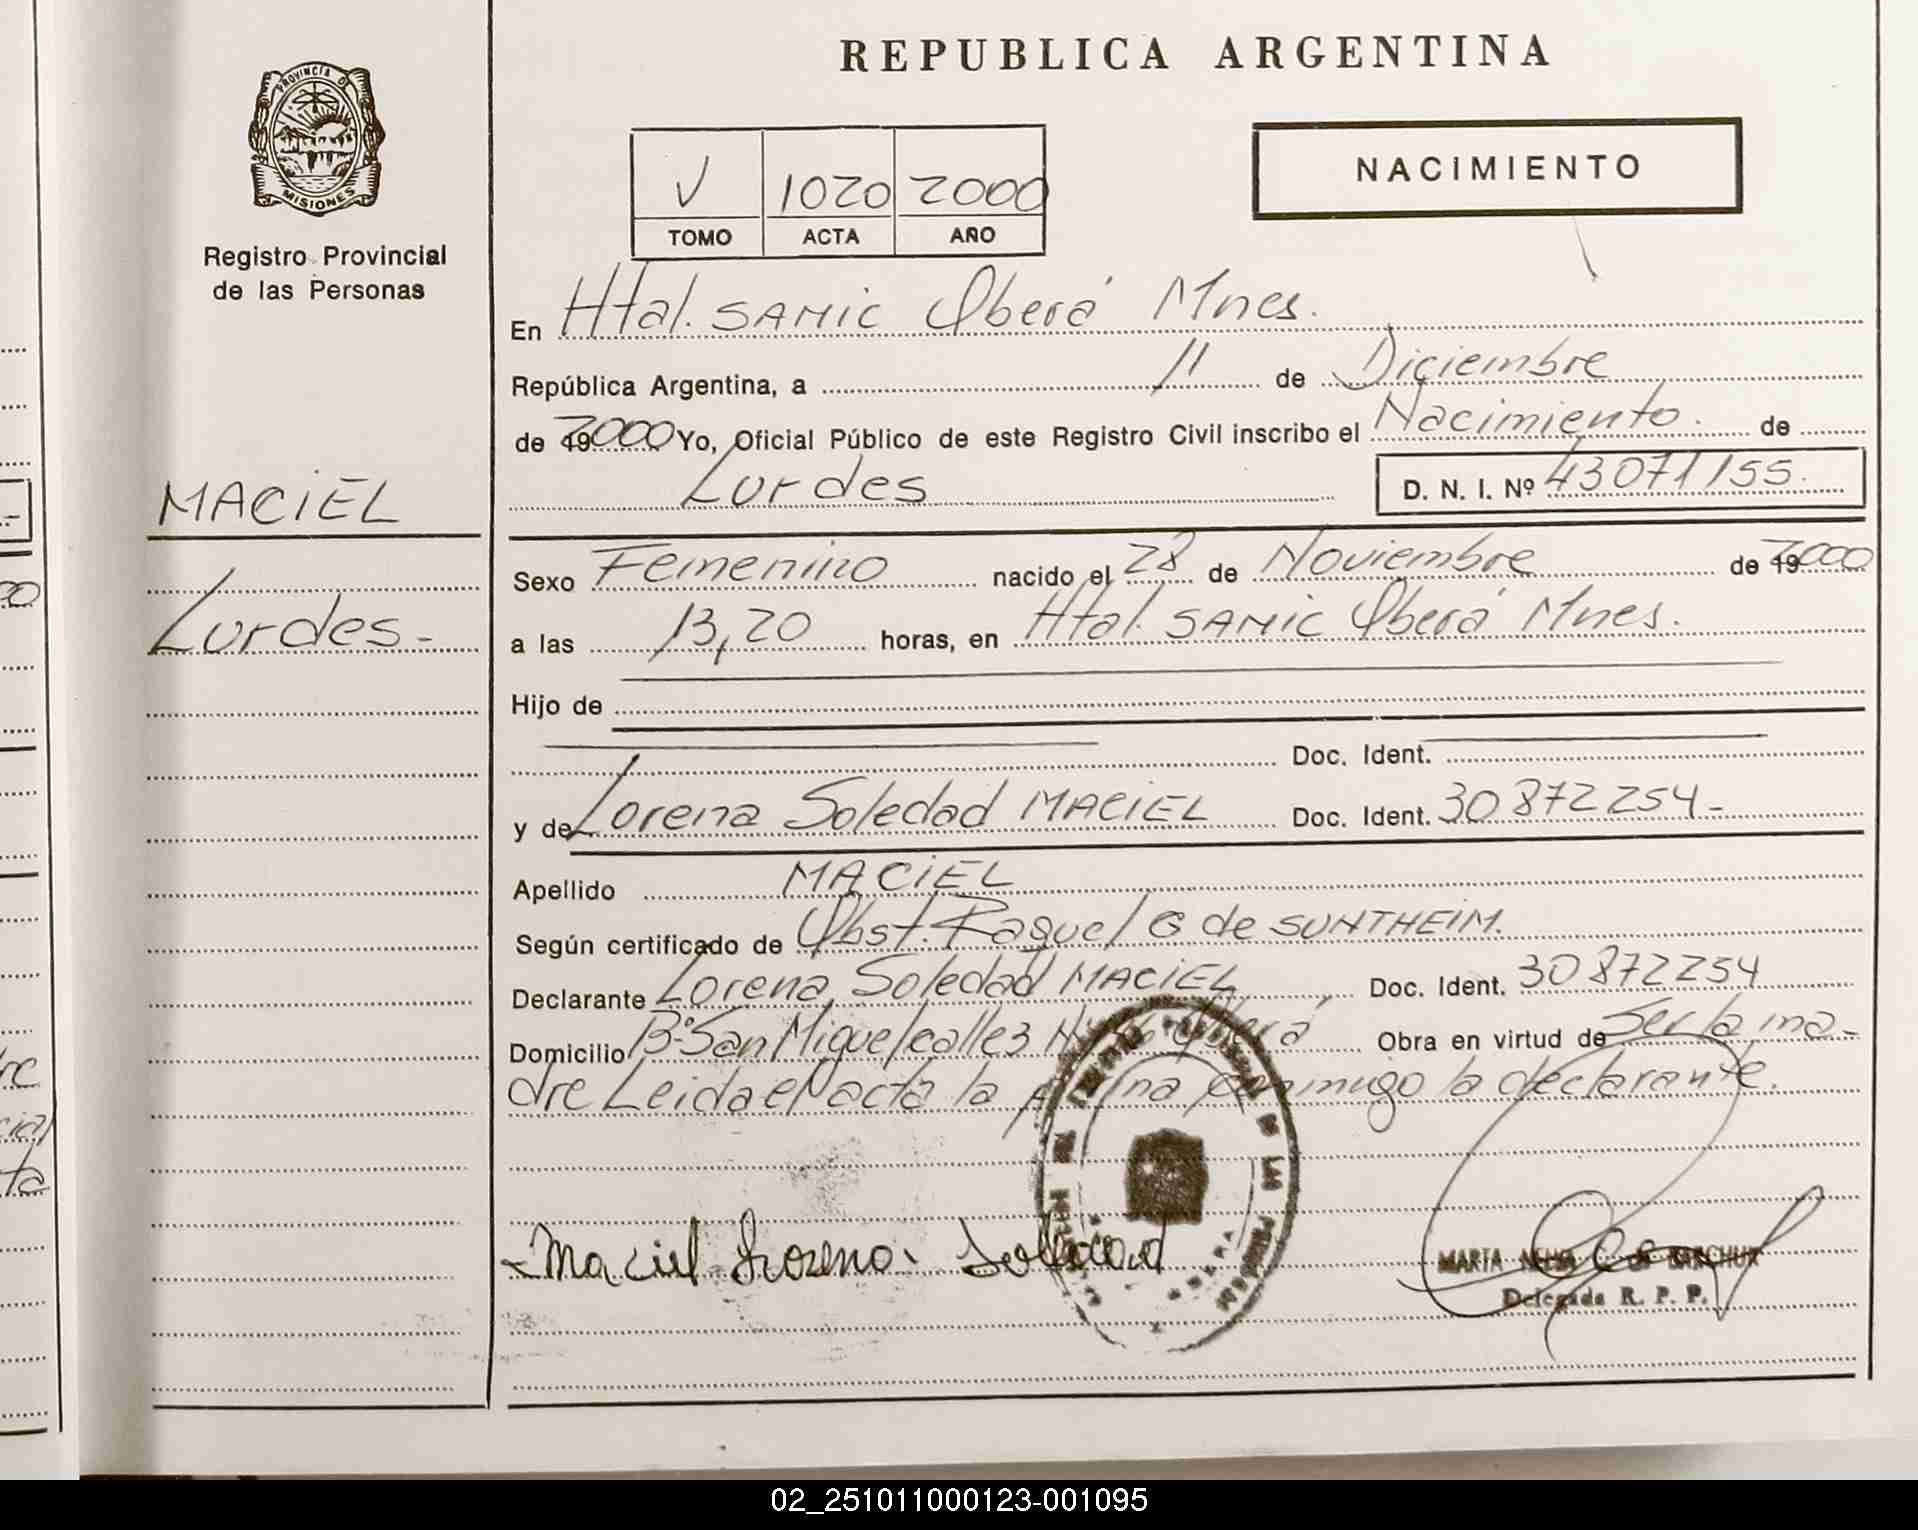 REPUBLICA ARGENTINA
PROVINCIA D
MISIONES
Registro Provincial
de las Personas
V 1020 2000
TOMO ACTA AÑO
NACIMIENTO
En Htal. SAMIC Oberá Mnes.
República Argentina, a 11 de Diciembre
de 19 2000 Yo, Oficial Público de este Registro Civil inscribo el Nacimiento. de
Lurdes D. N. I. Nº 43071155.
MACIEL
Lurdes-
Sexo Femenino nacido el 28 de Noviembre de 19 2000
a las 13,20 horas, en Htal. SAMIC Oberá Mnes.
Hijo de
Doc. Ident.
y de Lorena Soledad MACIEL Doc. Ident. 30872254-
Apellido MACIEL
Según certificado de Obst. Raquel G de SUNTHEIM.
Declarante Lorena Soledad MACIEL Doc. Ident. 30872254
Domicilio Bº San Miguel calle 3 Oberá Obra en virtud de Ser la ma-
dre Leida el acta la conmigo la declarante.
Maciel Lorena Soledad
MARTA
Delegada R. P. P.
OBERA
02_251011000123-001095